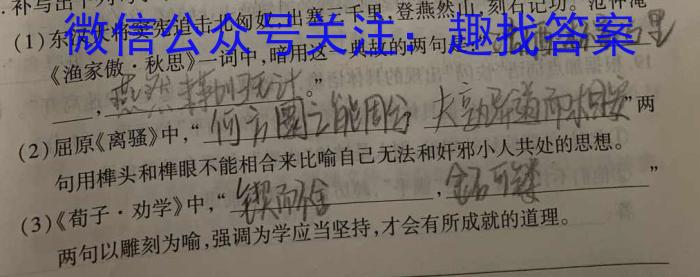 补写出下列
(1)东汉大将窦宪追击北匈奴,出塞三千里,登燕然山,刻石记功。范仲淹
微信公众号关注:趣找答案
《渔家傲·秋思》一词中,暗用这一典故的两句是:“ 里
,燕然未勒归无计。”
(2)屈原《离骚》中,“何方圜之能周兮 夫孰异道而相安”两
句用榫头和榫眼不能相合来比喻自己无法和奸邪小人共处的思想。
(3)《荀子·劝学》中,“锲而舍,金石可镂”
两句以雕刻为喻,强调为学应当坚持,才会有所成就的道理。